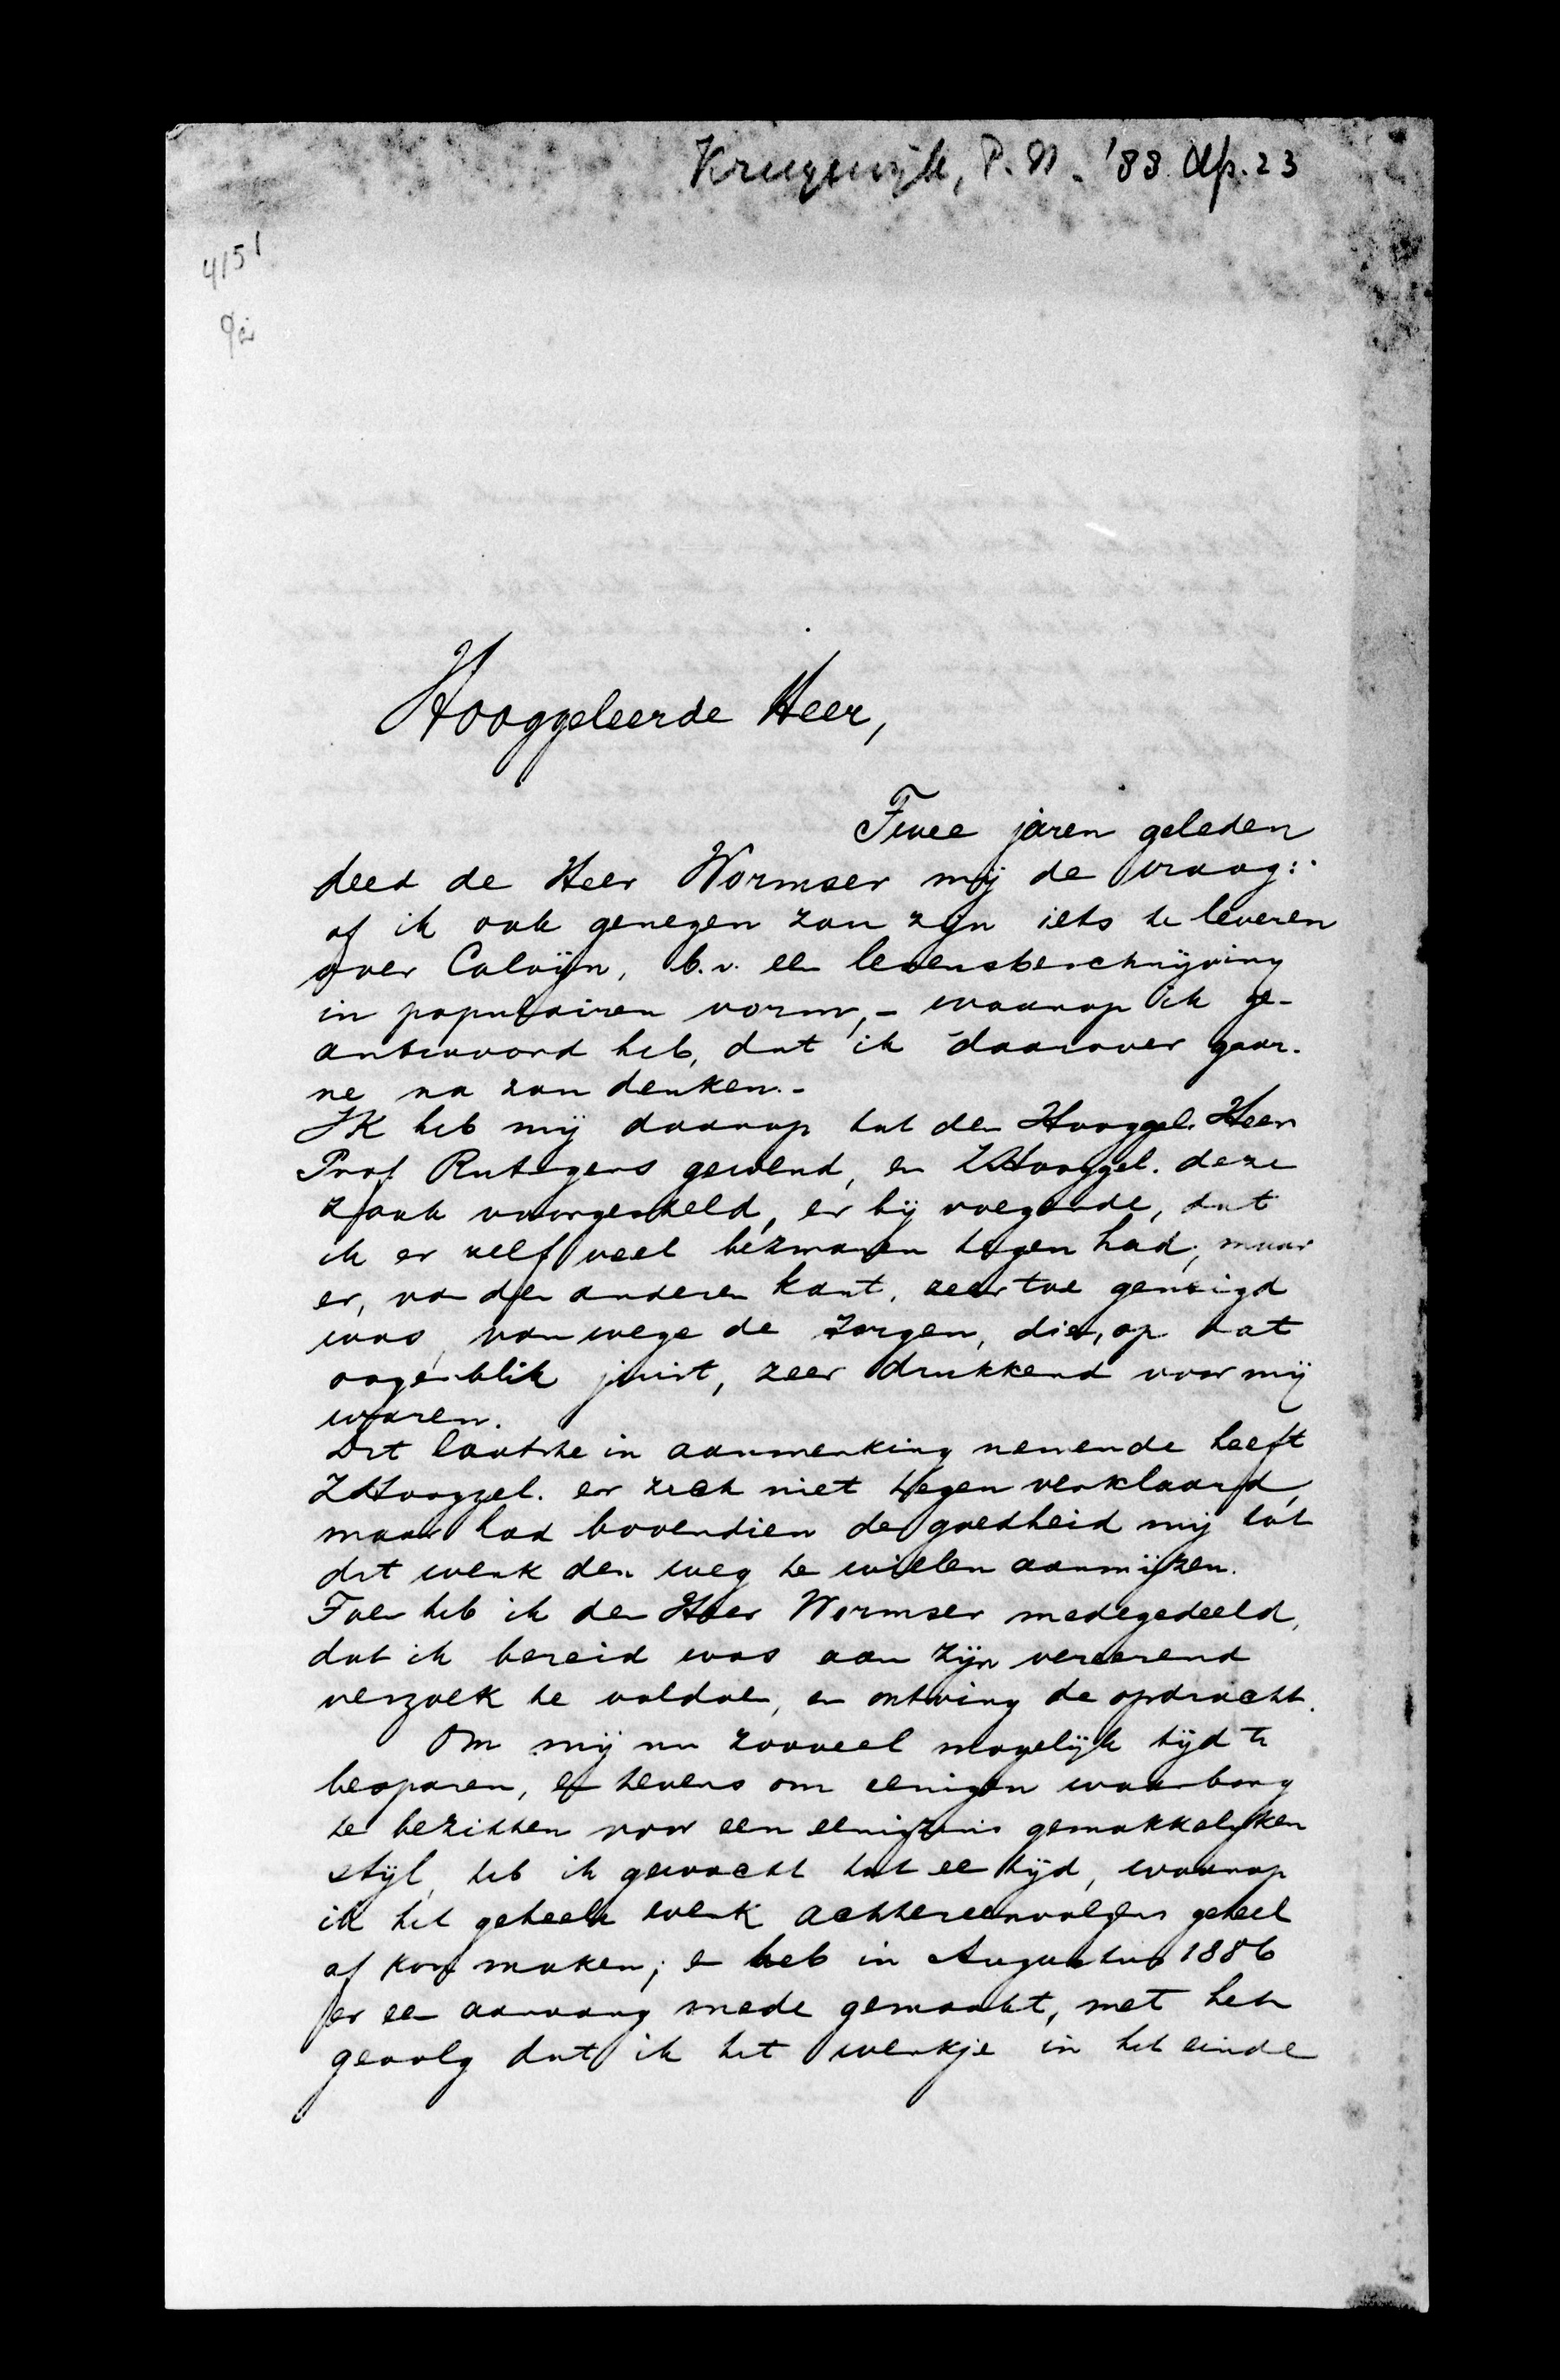 Kruyswijk, P. N. '88 Ap. 23
4151
Hooggeleerde Heer,
Twee jaren geleden
deed de Heer Wormser mij de vraag:
of ik ook genegen zou zijn iets te leveren
over Calvijn, b.v. een levensbeschrijving
in populairen vorm, - waarop ik ge-
antwoord heb, dat ik daarover gaar-
ne na zou denken. -
Ik heb mij daarop tot den Hooggel. Heer
Prof Rutgers gewend, en ZHooggel. deze
zaak voorgesteld, er bij voegende, dat
ik er zelf veel bezwaren tegen had, maar
er, van den anderen kant, zeer toe geneigd
was, vanwege de zorgen, die, op dat
oogenblik juist, zeer drukkend voor mij
waren.
Dit laatste in aanmerking nemende heeft
ZHooggel. er zich niet tegen verklaard,
maar had bovendien de goedheid mij tot
dit werk den weg te willen aanwijzen.
Toen heb ik den Heer Wormser medegedeeld,
dat ik bereid was aan zijn vereerend
verzoek te voldoen, en ontving de opdracht.
Om mij nu zooveel mogelijk tijd te
besparen, en tevens om eenigen waarborg
te bezitten voor een eenigzins gemakkelijken
stijl, heb ik gewacht tot een tijd, waarop
ik het geheele werk achtereenvolgens geheel
af kon maken; en heb in Augustus 1886
er een aanvang mede gemaakt, met het
gevolg dat ik het werkje in het einde